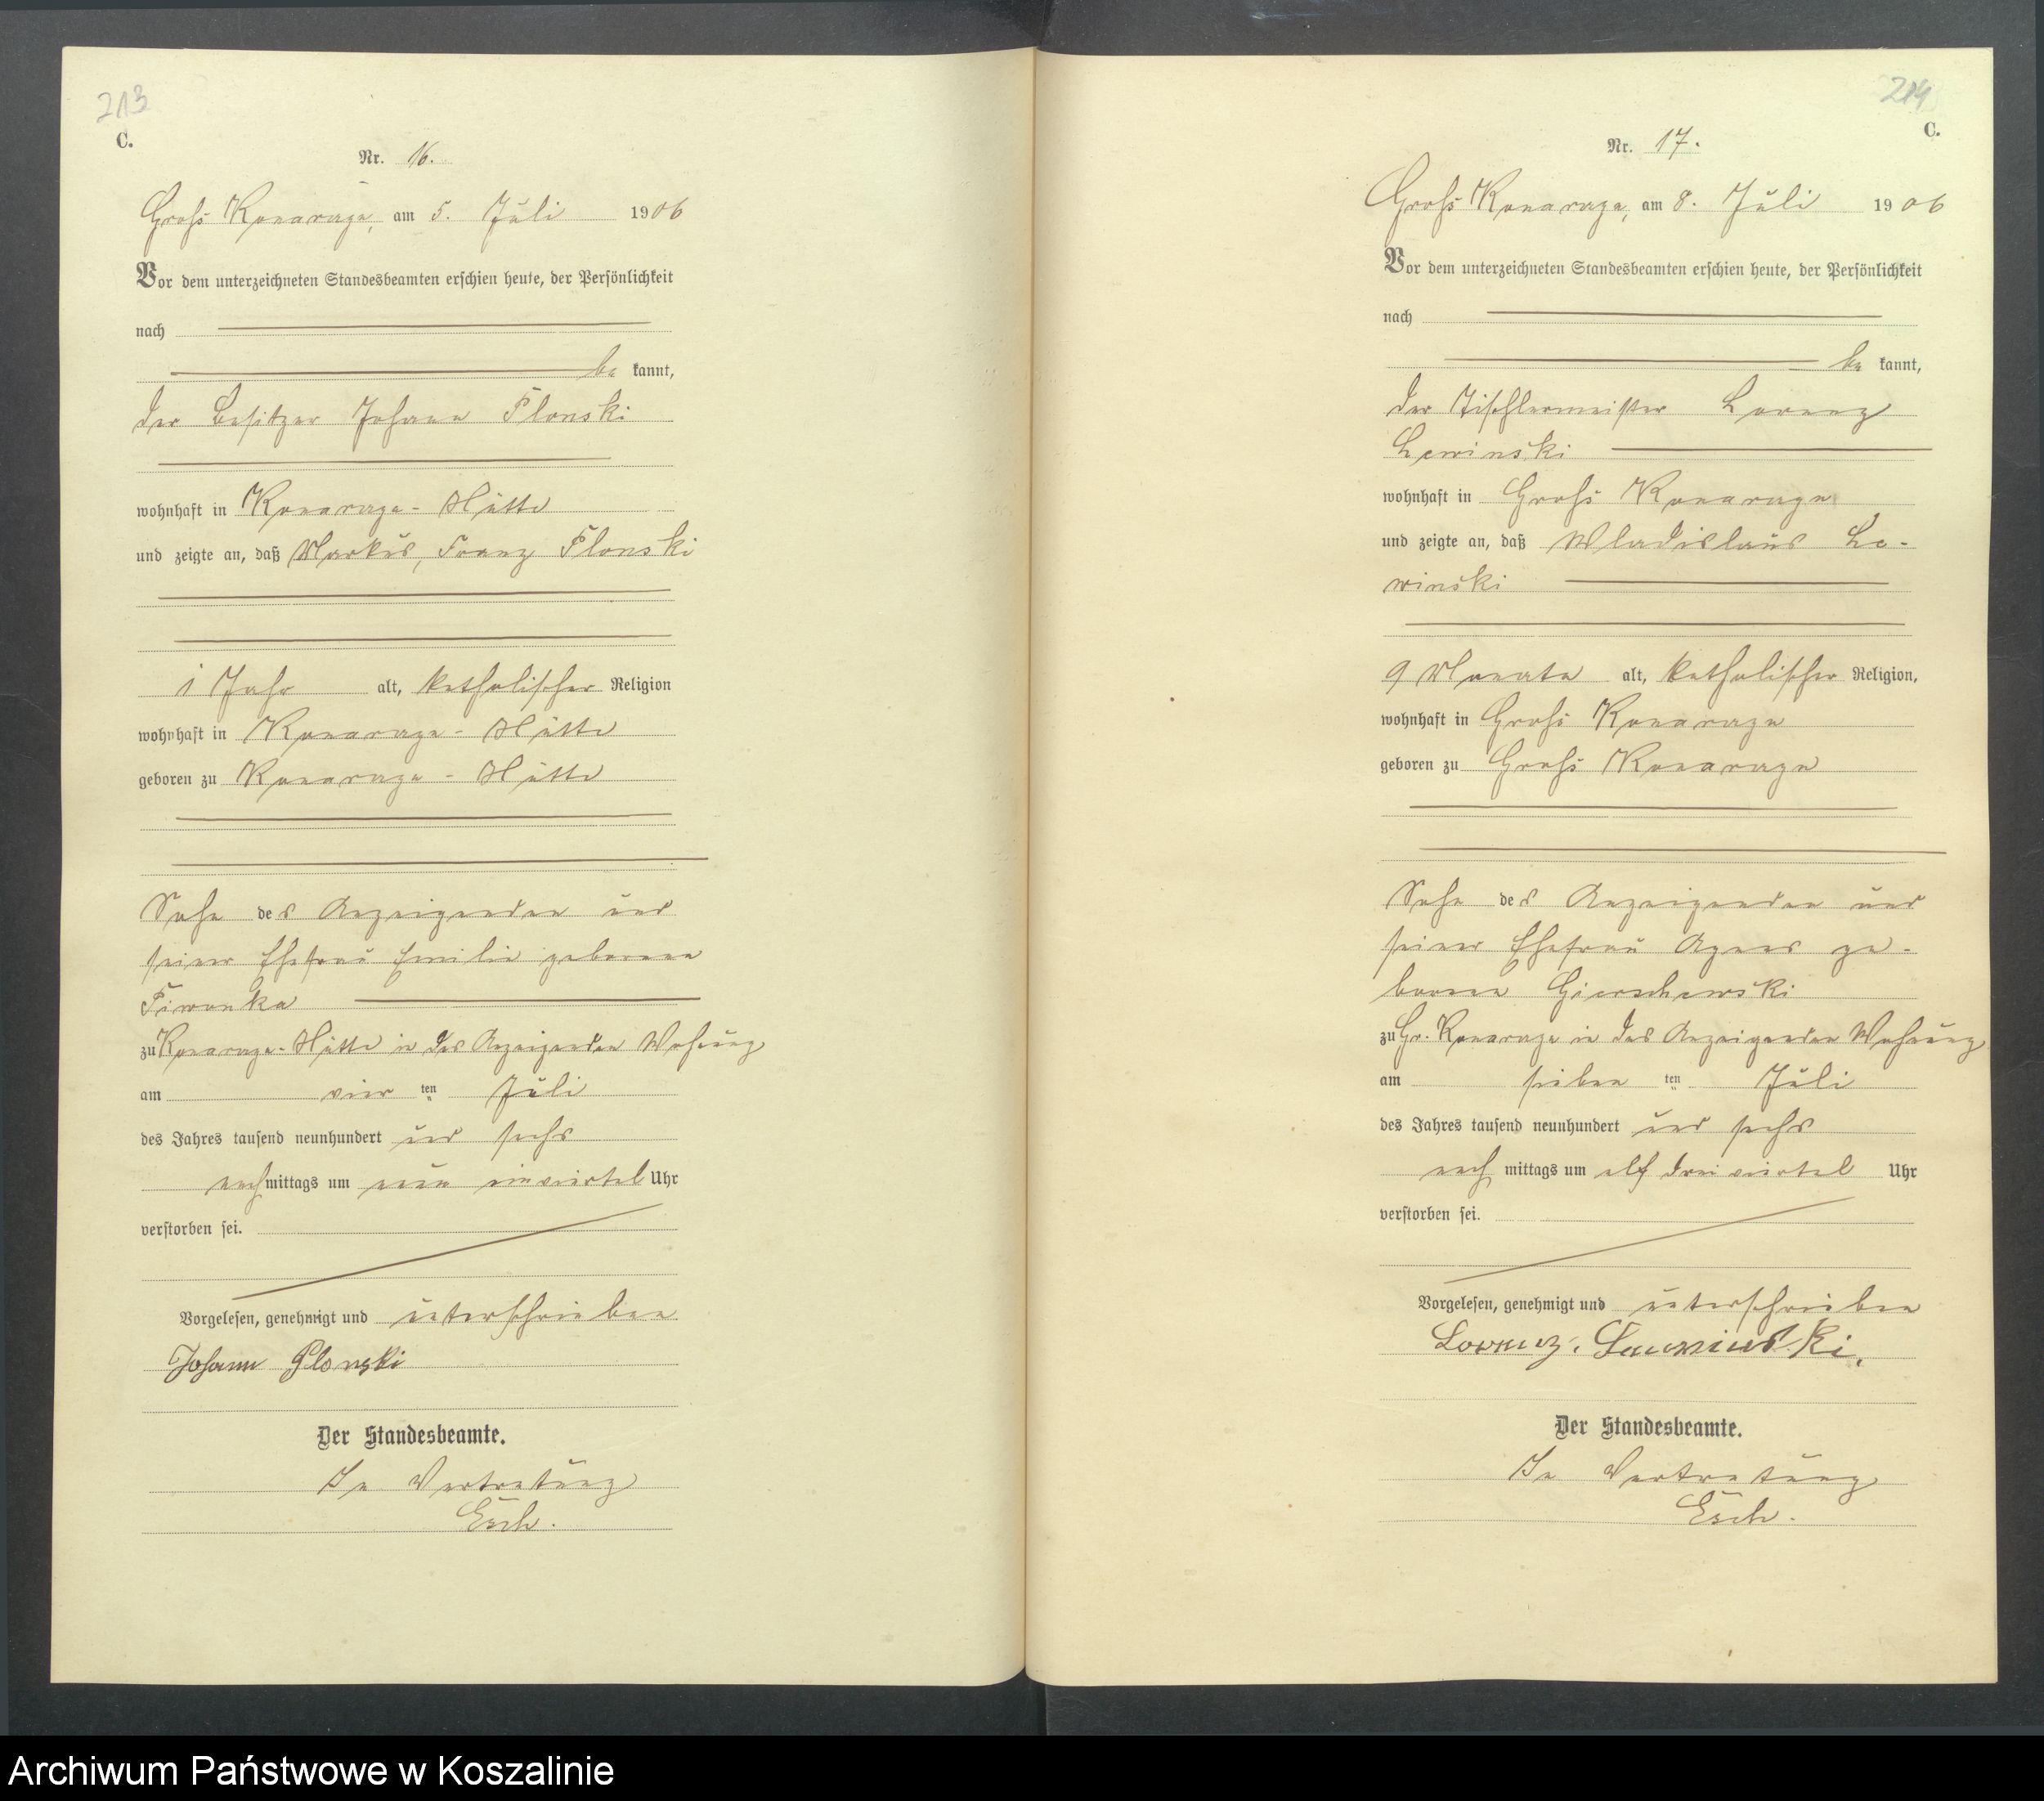 213
C.
Nr. 16.
Groß Konarzyn, am 5. Juli 1906
Vor dem unterzeichneten Standesbeamten erschien heute, der Persönlichkeit
nach
be kannt,
der Besitzer Johann Plonski
wohnhaft in Konarzyn-Hütte
und zeigte an, daß Markus, Franz Plonski
1 Jahr alt, katholischer Religion
wohnhaft in Konarzyn-Hütte
geboren zu Konarzyn-Hütte
Sohn des Anzeigenden und
seiner Ehefrau Emilie geborenen
Piwonka
zu Konarzyn-Hütte in des Anzeigenden Wohnung
am vier ten Juli
des Jahres tausend neunhundert und sechs
nachmittags um neun einviertel Uhr
verstorben sei.
Vorgelesen, genehmigt und unterschrieben
Johann Plonski
Der Standesbeamte.
In Vertretung
Esch.
214
C.
Nr. 17.
Groß Konarzyn, am 8. Juli 1906
Vor dem unterzeichneten Standesbeamten erschien heute, der Persönlichkeit
nach
be kannt,
der Tischlermeister Lorenz
Lewinski
wohnhaft in Groß Konarzyn
und zeigte an, daß Wladislaus Le-
winski
9 Monate alt, katholischer Religion,
wohnhaft in Groß Konarzyn
geboren zu Groß Konarzyn
Sohn des Anzeigenden und
seiner Ehefrau Agnes ge-
borenen Gierschewski
zu Gr. Konarzyn in des Anzeigenden Wohnung
am sieben ten Juli
des Jahres tausend neunhundert und sechs
nach mittags um elf dreiviertel Uhr
verstorben sei.
Vorgelesen, genehmigt und unterschrieben
Lorenz Lewinski.
Der Standesbeamte.
In Vertretung
Esch.
Archiwum Państwowe w Koszalinie